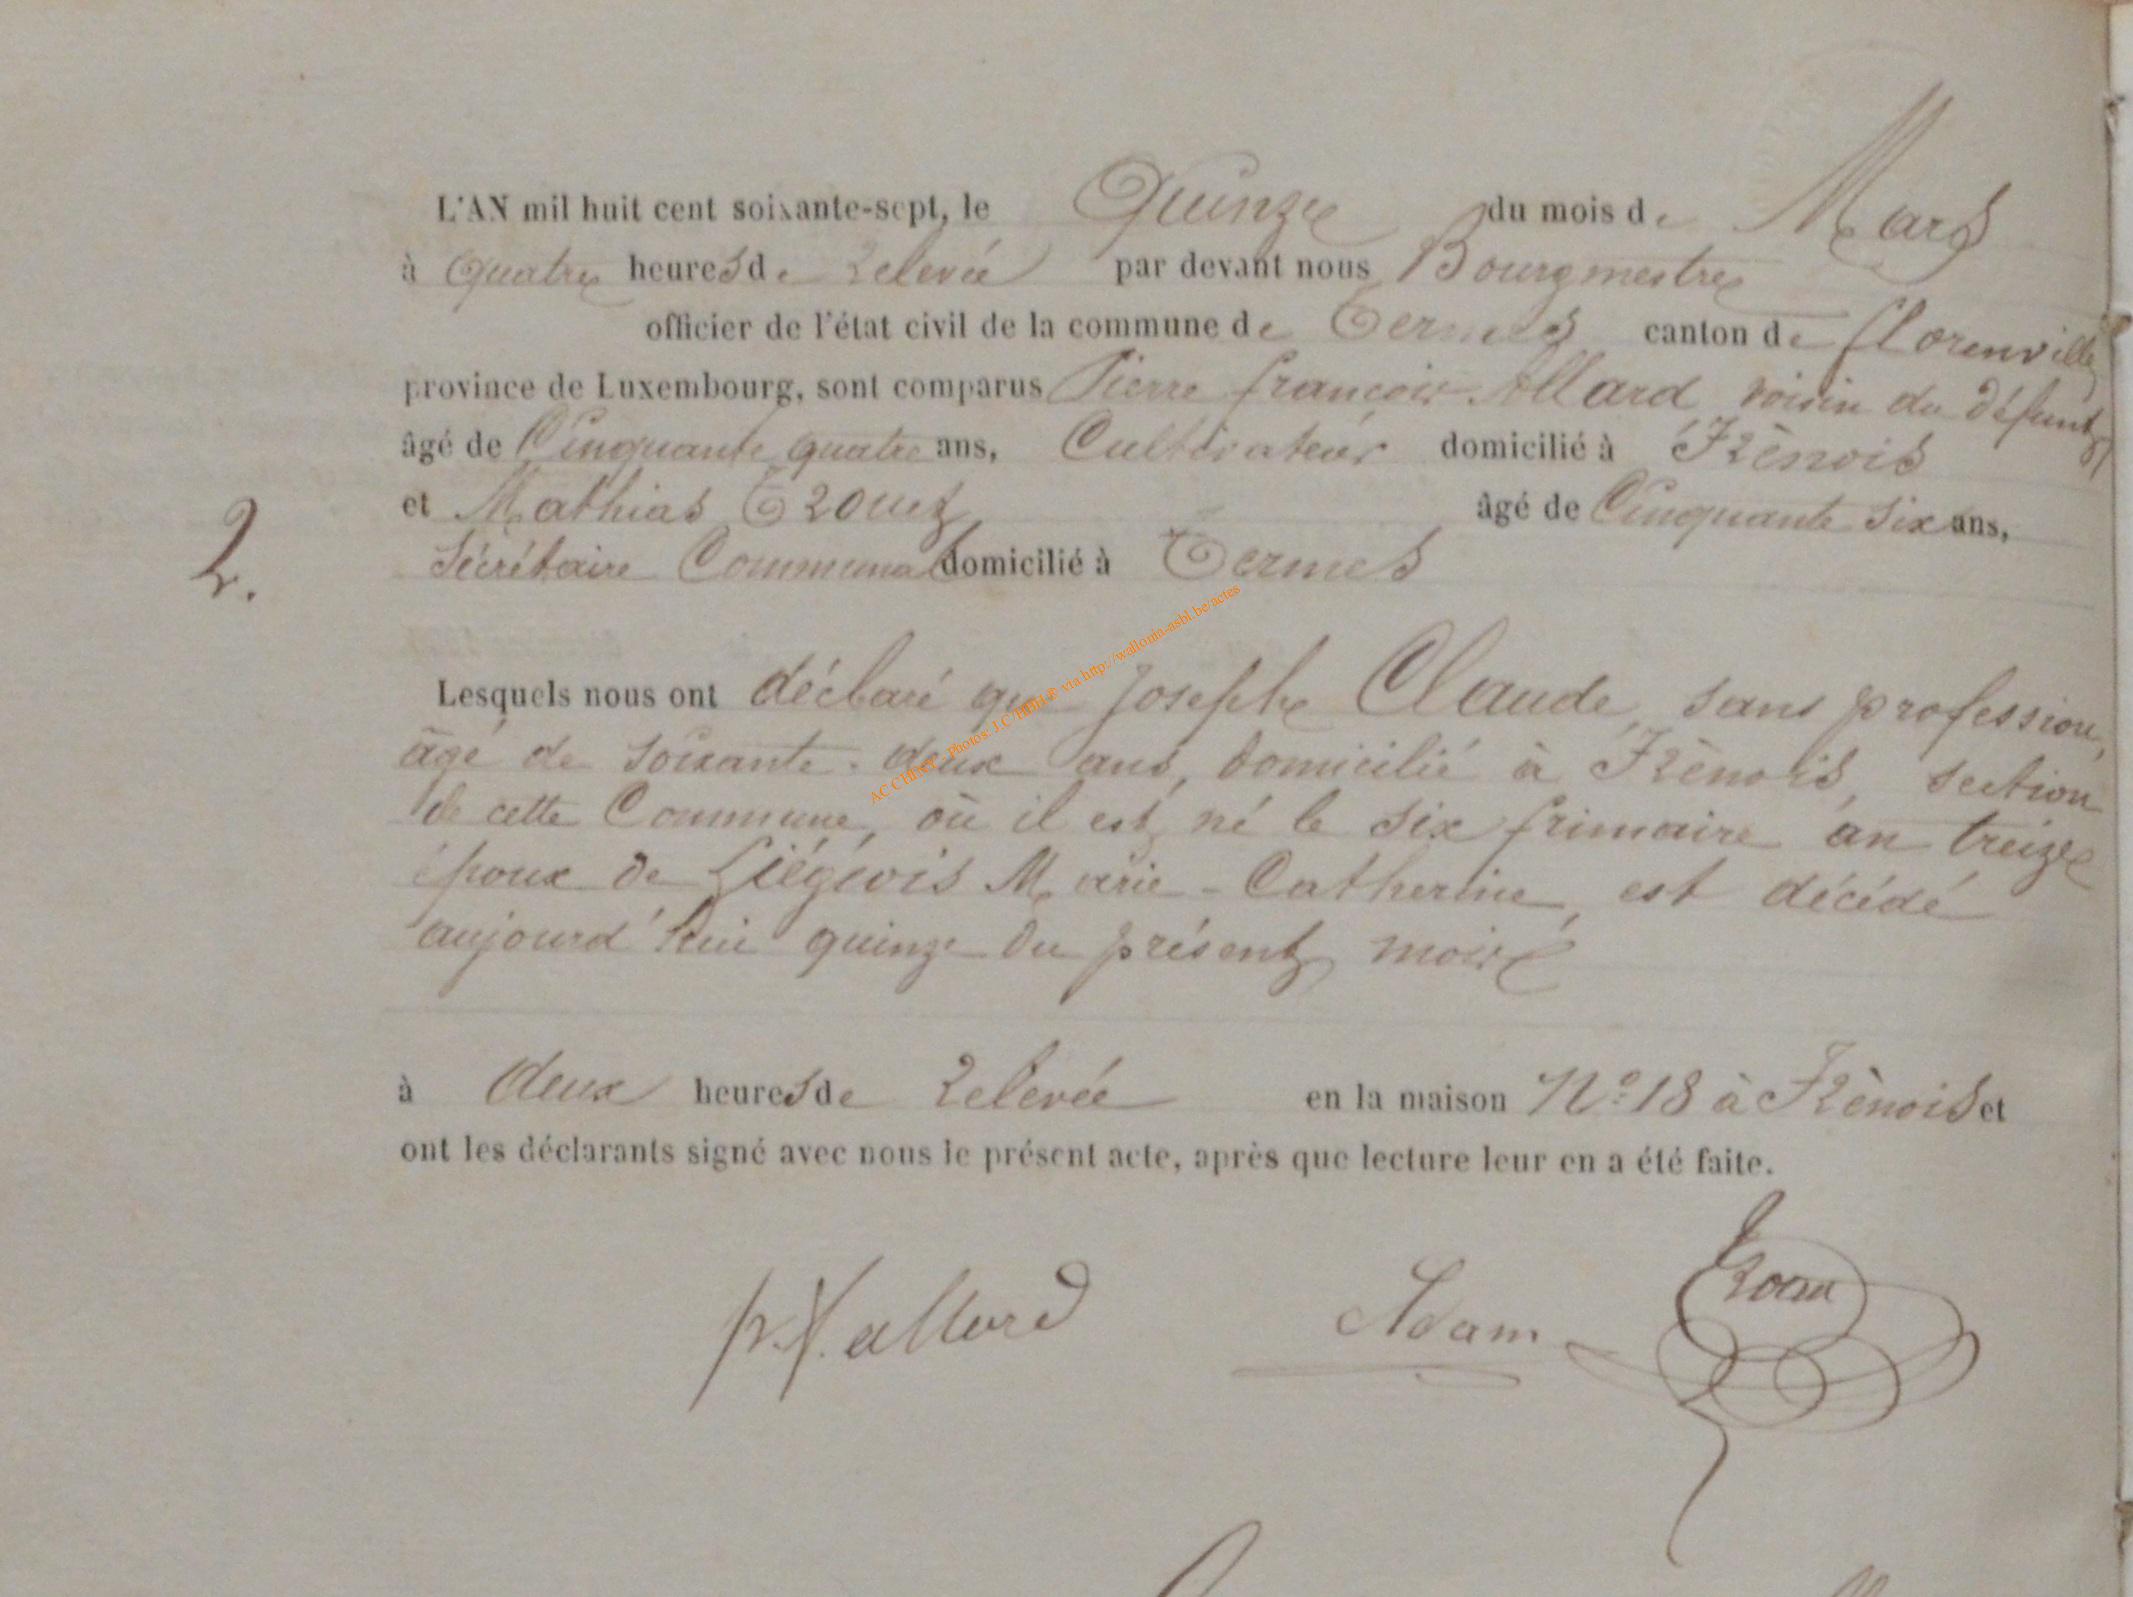 L'AN mil huit cent soixante-sept, le Quinze du mois de Mars
à Quatre heures de relevée par devant nous Bourgmestre
officier de l'état civil de la commune de Termes canton de florenville
province de Luxembourg, sont comparus Pierre françois Allard voisin du défunt
âgé de Cinquante quatre ans, Cultivateur domicilié à Frènois
et Mathias âgé de Cinquante six ans,
Sécrétaire Communal domicilié à Termes
2.
Lesquels nous ont déclaré que Joseph Claude, sans profession,
âgé de soixante-deux ans, domicilié à Frènois, section
de cette Commune, où il est né le six frimaire an treize
époux de Liégeois Marie-Catherine, est décédé
aujourd'hui quinze du présent mois
à deux heures de relevée en la maison N° 18 à Frènois et
ont les déclarants signé avec nous le présent acte, après que lecture leur en a été faite.
p. f. allard Adam
AC CHINY - Photos: J.C via http://wallonia-asbl.be/actes